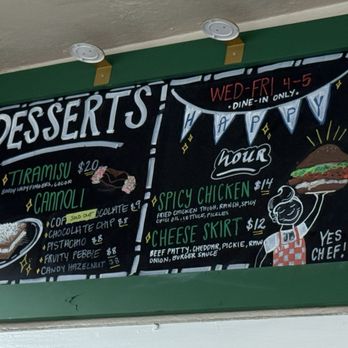 DESSERTS
TIRAMISU $20
CANNOLI
SOLD OUT
CHOCOLATE CHIP $8
PISTACHIO $8
FRUITY PEBBLE $8
CANDY HAZELNUT
WED-FRI 4-5
DINE-IN ONLY
HAPPY
HOUR
SPICY CHICKEN $14
FRIED CHICKEN THIGH, RANCH, SPICY
LETTUCE, PICKLES
CHEESE SKIRT $12
BEEF PATTY, CHEDDAR, PICKLE, RAW
ONION, BURGER SAUCE
YES
CHEF!